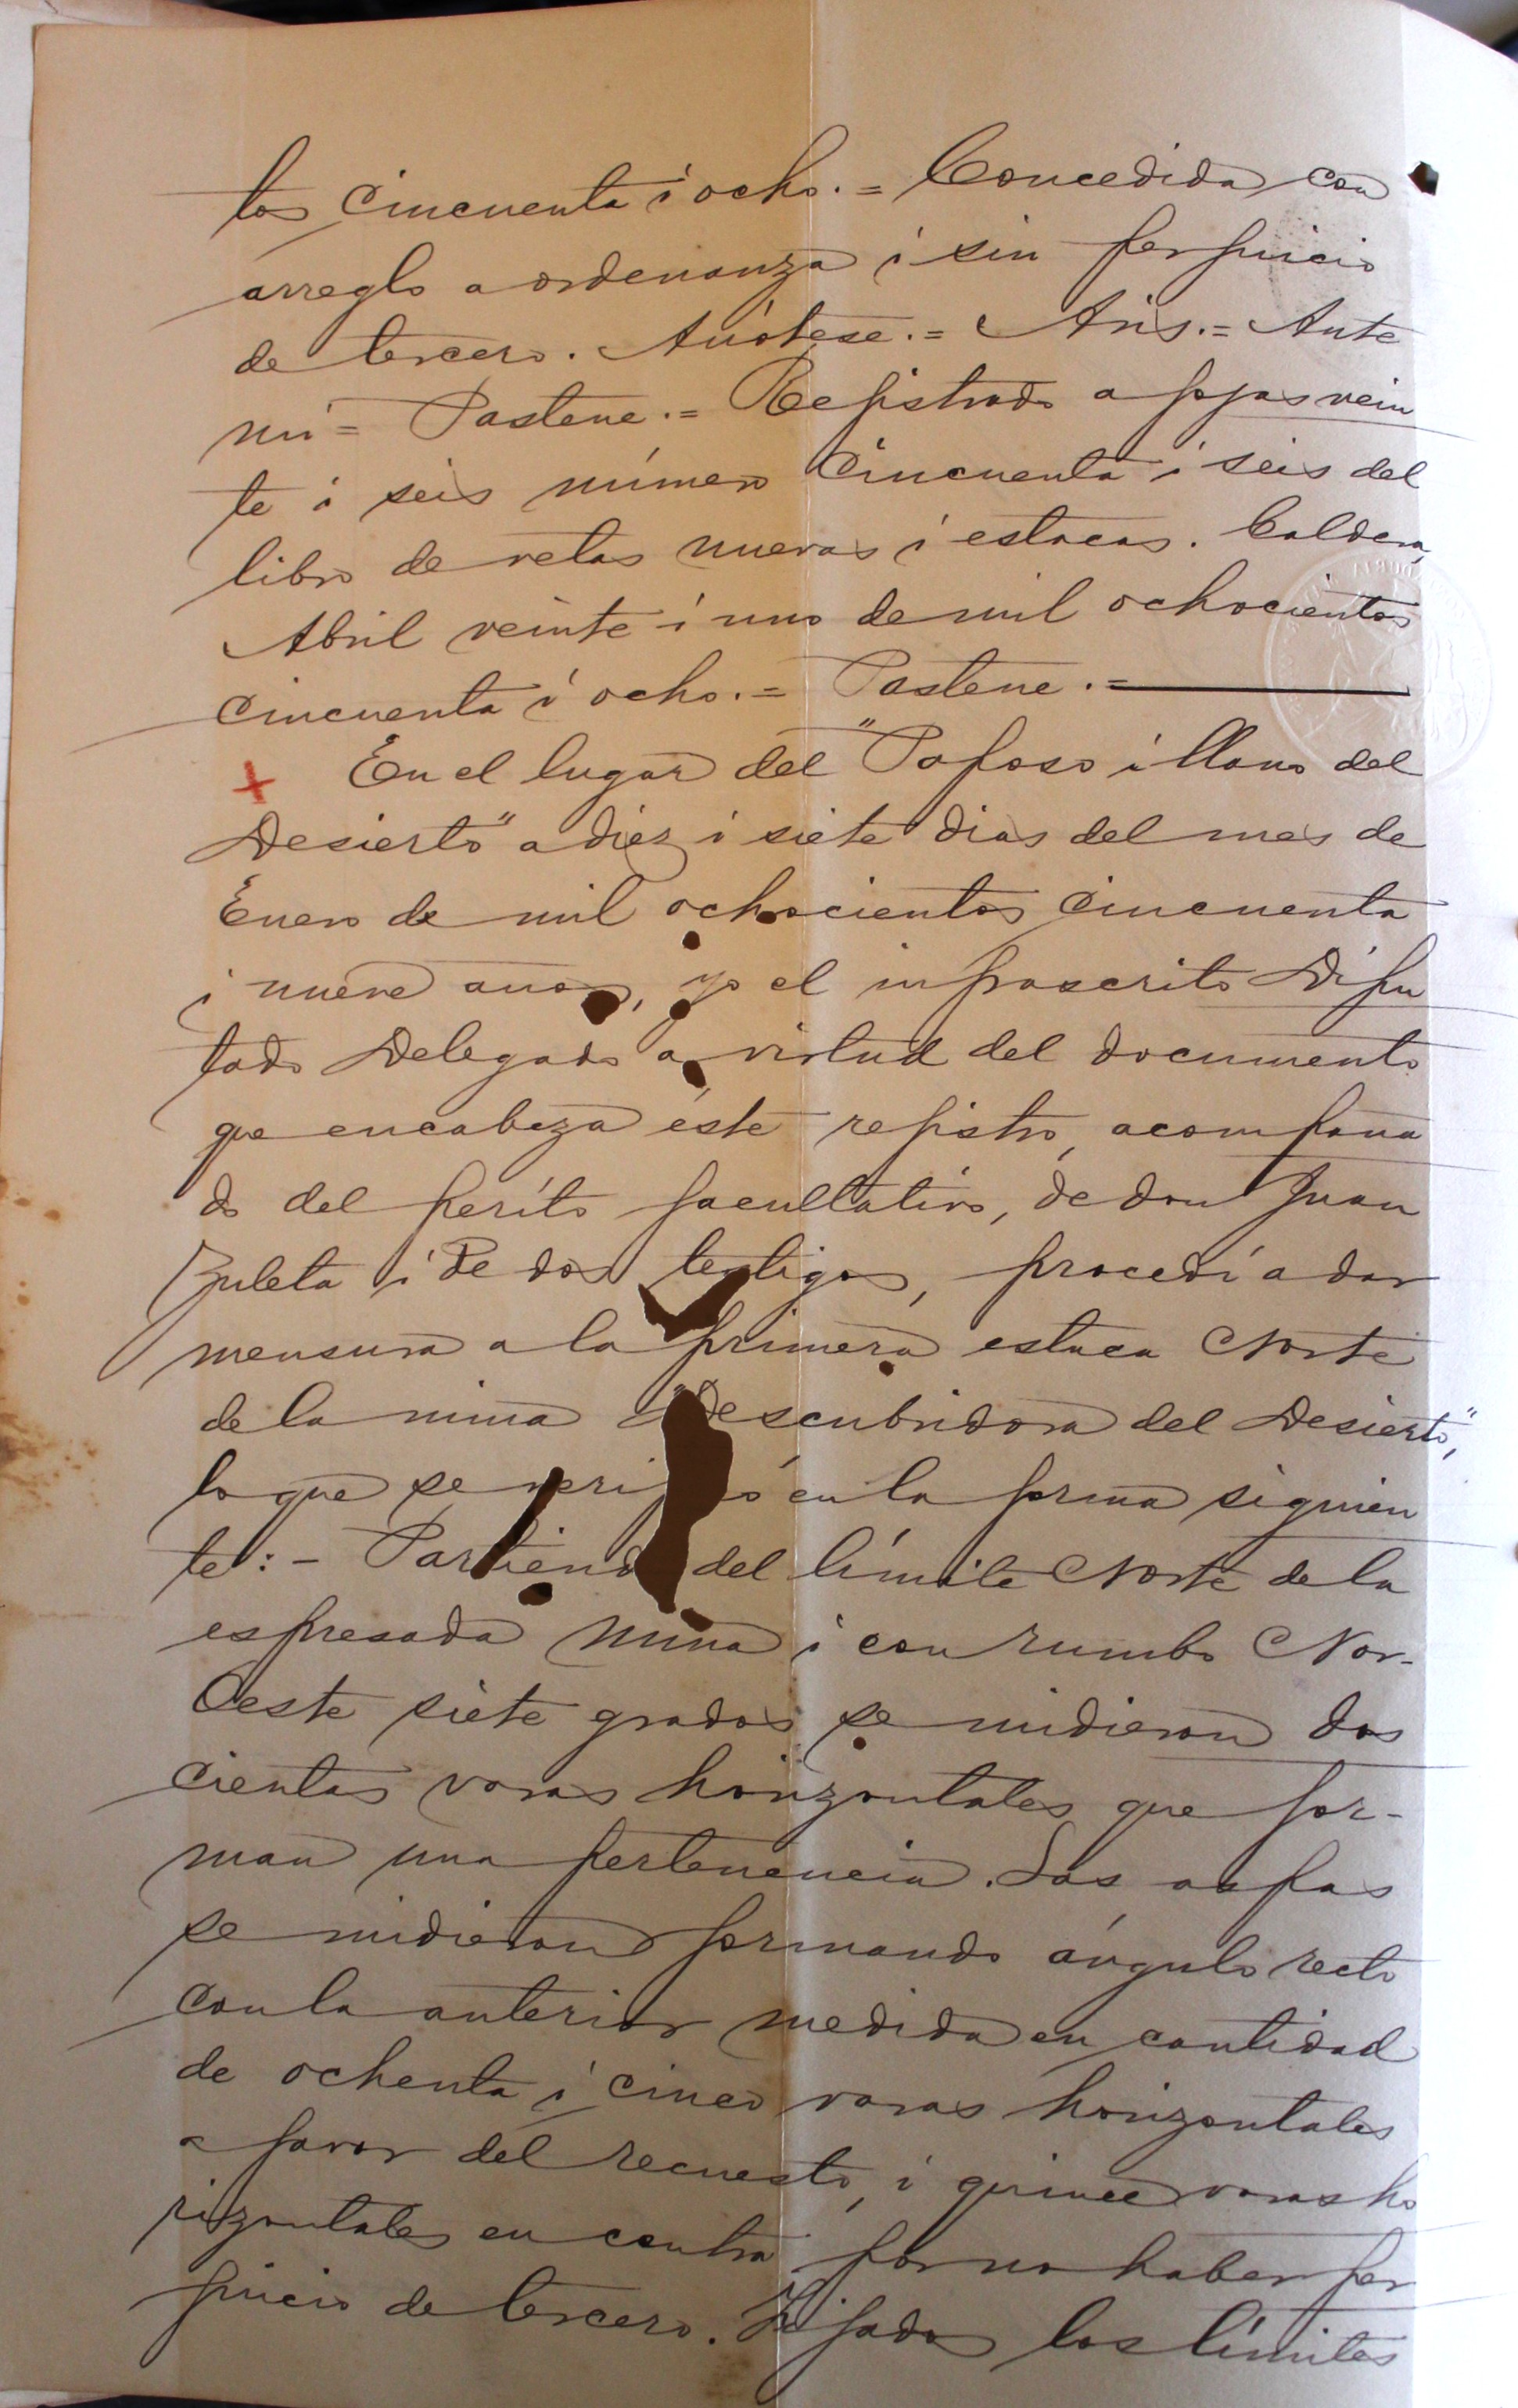 tos cincuenta i ocho.= Concedida con
arreglo a ordenanza i sin perjuicio
de tercero. Anótese.= Aris.= Ante
mi= Pastene.= Rejistrado a fojas vein
te i seis número cincuenta i seis del
libro de vetas nuevas i estacas. Caldera,
Abril veinte i uno de mil ochocientos
cincuenta i ocho.= Pastene.=
En el lugar del "Paposo i llano del
Desierto" a diez i siete dias del mes de
Enero de mil ochocientos cincuenta
i nueve anos, yo el infrascrito Dipu
tado Delegado a virtud del documento
que encabeza éste rejistro, acompana
do del períto facultativo, de don Juan
Zuleta i de dos testigos, procedí a dar
mensura a la primera estaca Norte
de la mina "Descubridora del Desierto",
lo que se veri ó en la forma siguien
te:- Partiendo del límite Norte de la
espresada mina i con rumbo Nor-
Oeste siete grados se midieron dos
cientas varas horizontales que for-
man una pertenencia. Las aspas
se midieron formando ángulo recto
con la anterior medida en cantidad
de ochenta i cinco varas horizontales
a favor del recuesto, i quince varas ho
rizontales en contra por no haber per
juicio de tercero. Fijados los límites